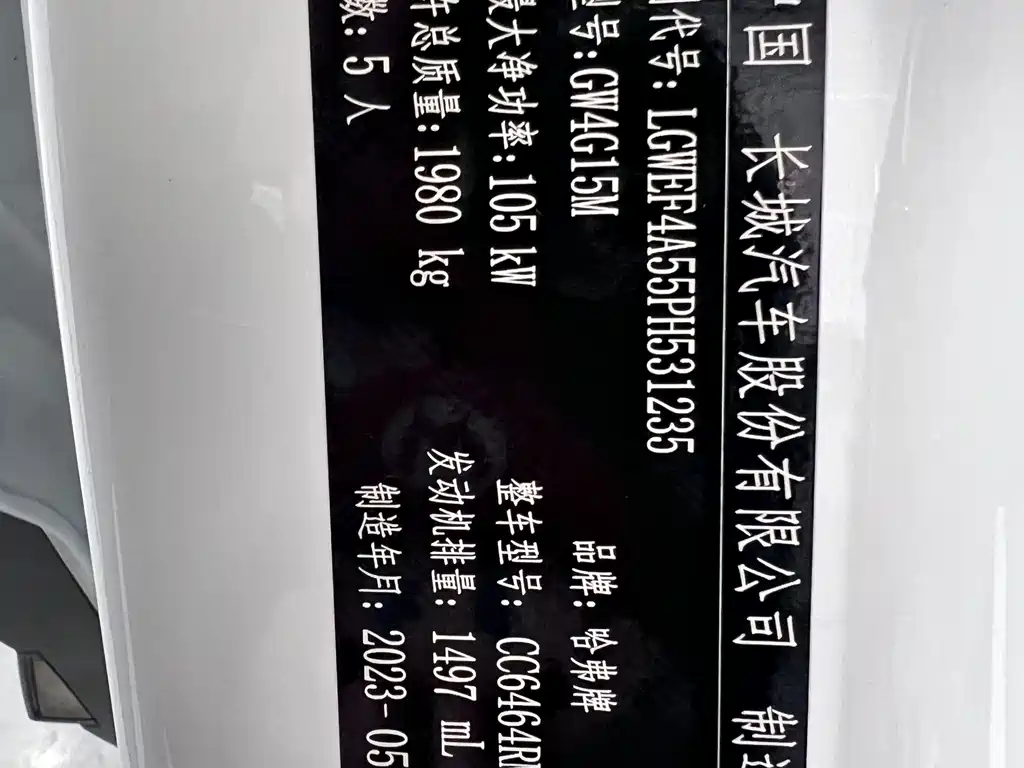 国 长城汽车股份有限公司 制
代号: LGWEF4A55PH531235
型号:GW4G15M 品牌: 哈弗牌
最大净功率:105 kW 整车型号: CC6464R
总质量:1980 kg 发动机排量: 1497 mL
数: 5 人 制造年月: 2023-05